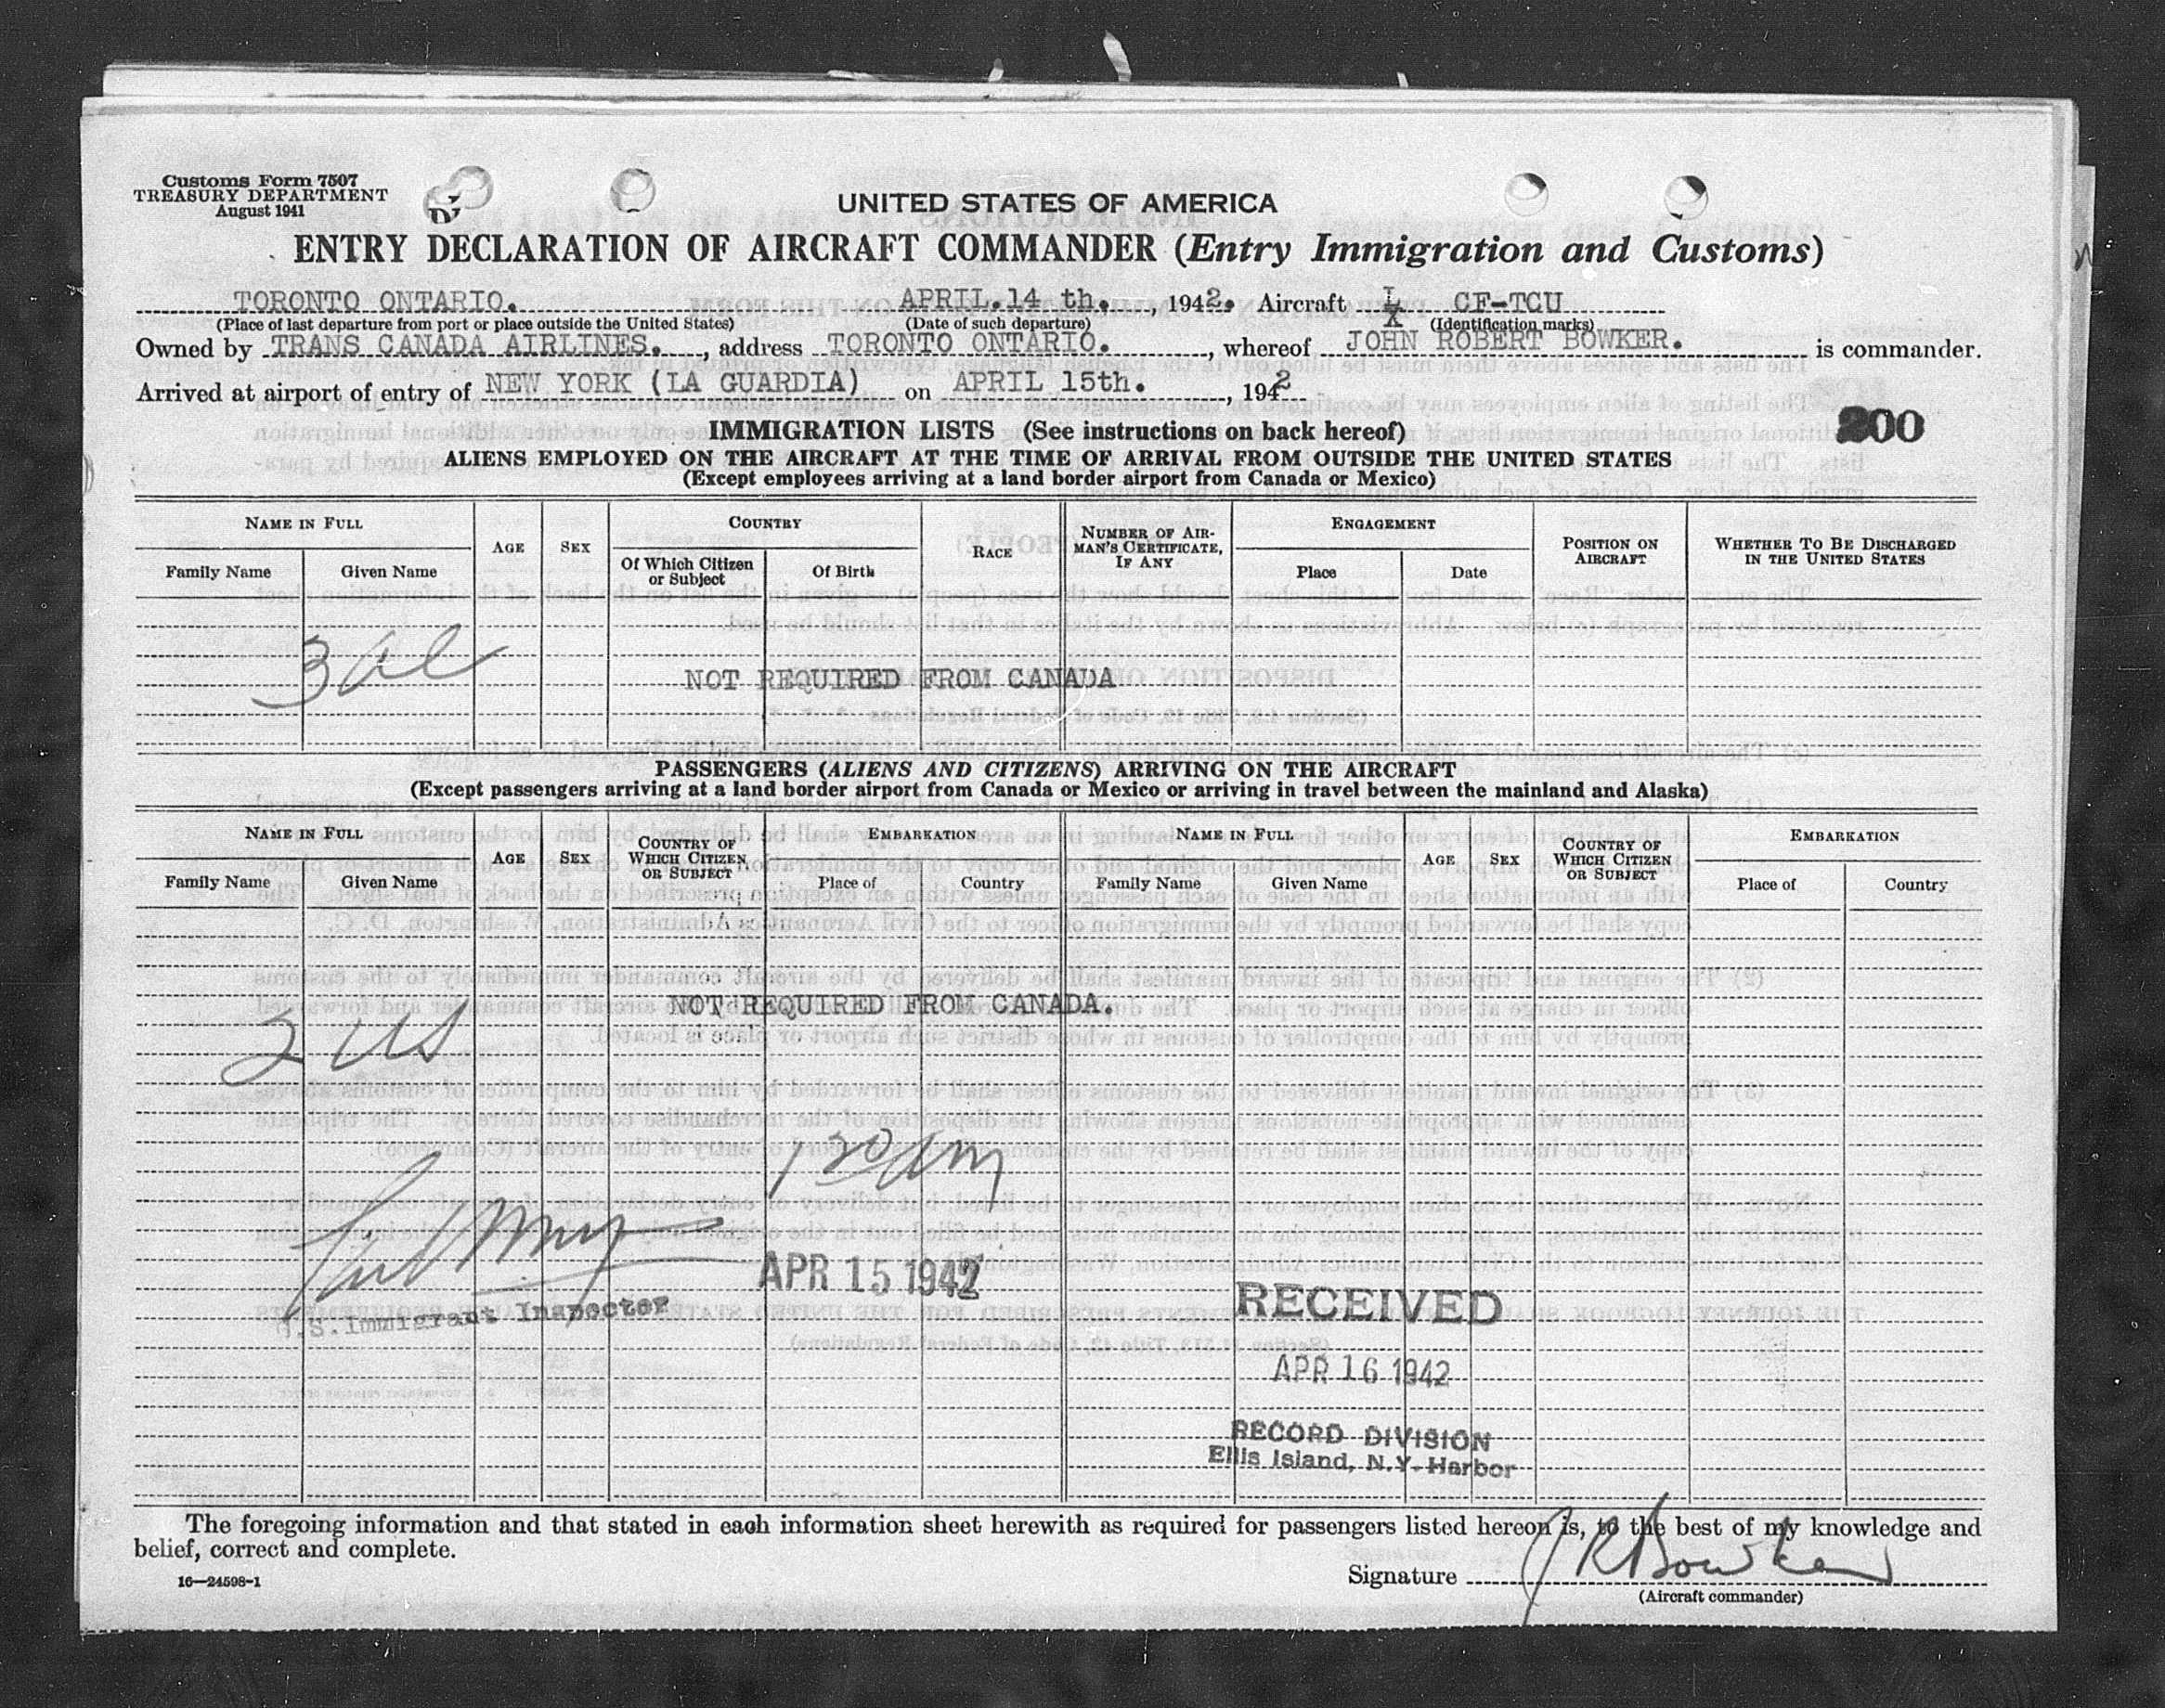 Customs Form 7507
TREASURY DEPARTMENT
August 1941
UNITED STATES OF AMERICA
ENTRY DECLARATION OF AIRCRAFT COMMANDER (Entry Immigration and Customs)
TORONTO ONTARIO. APRIL.14 th. , 1942. Aircraft CF-TCU
(Place of last departure from port or place outside the United States) (Date of such departure) (Identification marks)
Owned by TRANS CANADA AIRLINES. , address TORONTO ONTARIO. , whereof JOHN ROBERT BOWKER. is commander.
Arrived at airport of entry of NEW YORK (LA GUARDIA) on APRIL 15th. , 1942
200
IMMIGRATION LISTS (See instructions on back hereof)
ALIENS EMPLOYED ON THE AIRCRAFT AT THE TIME OF ARRIVAL FROM OUTSIDE THE UNITED STATES
(Except employees arriving at a land border airport from Canada or Mexico)
NAME IN FULL AGE SEX COUNTRY RACE NUMBER OF AIRMAN'S CERTIFICATE, IF ANY ENGAGEMENT POSITION ON AIRCRAFT WHETHER TO BE DISCHARGED IN THE UNITED STATES
Family Name Given Name Of Which Citizen or Subject Of Birth Place Date
NOT REQUIRED FROM CANADA
PASSENGERS (ALIENS AND CITIZENS) ARRIVING ON THE AIRCRAFT
(Except passengers arriving at a land border airport from Canada or Mexico or arriving in travel between the mainland and Alaska)
NAME IN FULL AGE SEX COUNTRY OF WHICH CITIZEN OR SUBJECT EMBARKATION NAME IN FULL AGE SEX COUNTRY OF WHICH CITIZEN OR SUBJECT EMBARKATION
Family Name Given Name Place of Country Family Name Given Name Place of Country
NOT REQUIRED FROM CANADA.
2 US
130 am
APR 15 1942
U.S. Immigrant Inspector
RECEIVED
APR 16 1942
RECORD DIVISION
Ellis Island, N.Y. Harbor
The foregoing information and that stated in each information sheet herewith as required for passengers listed hereon is, to the best of my knowledge and
belief, correct and complete.
16—24598-1
Signature J R Bowker
(Aircraft commander)